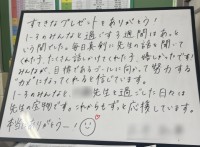 すてきなプレゼントをありがとう！
1-3のみんなと過ごす3週間はあっと
いう間でした。毎日真剣に先生の話を聞いて
くれたり、たくさん話しかけてくれたり、嬉しかったです！
みんなが、目標であるゴールに向って努力する
"力"になっていてくれると信じています。
1-3のみんな、先生と過ごした日々は
先生の宝物です。これからもずっと応援しています。
本当にありがとうー！